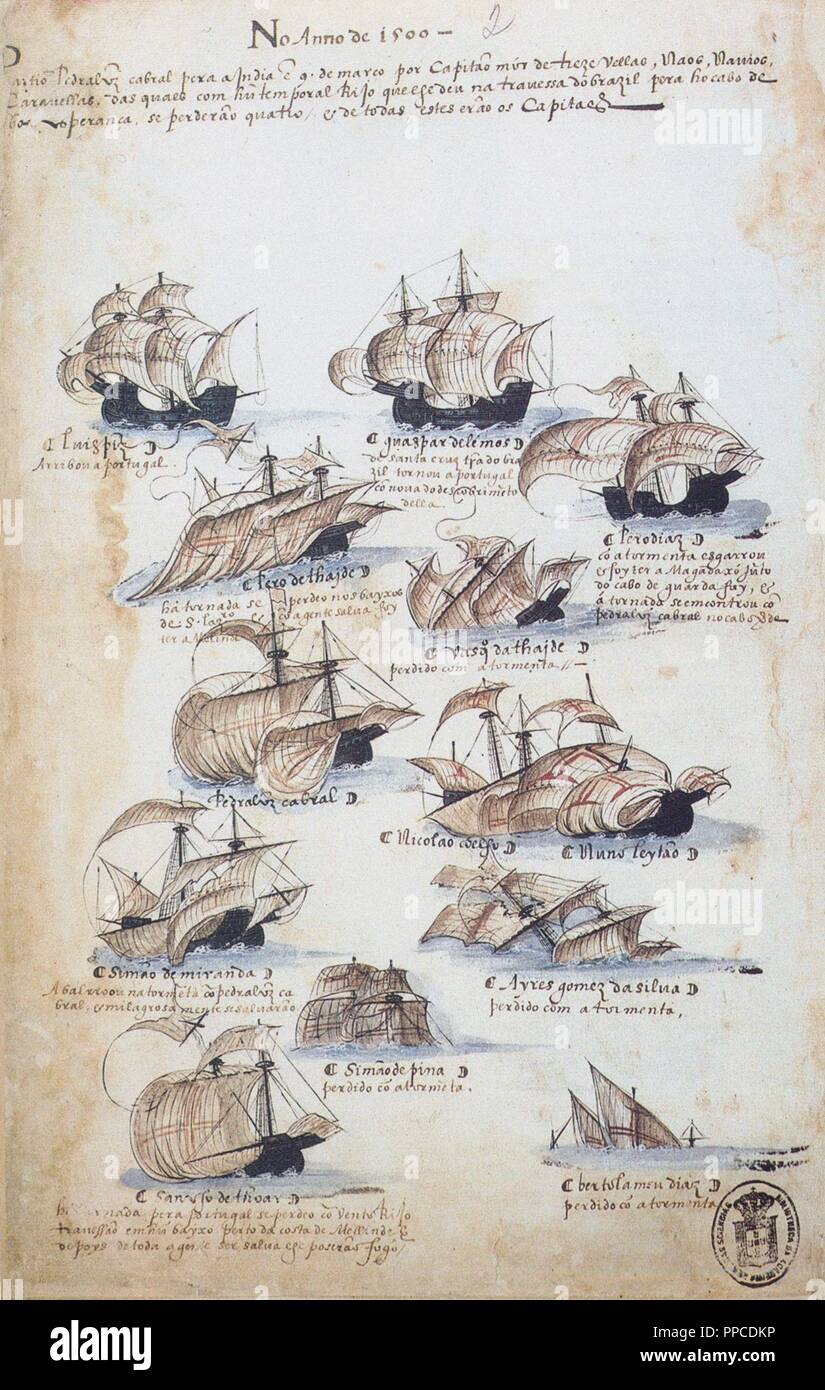 No Anno de 1500 –
2
Partio Pedraluz cabral pera a India ẽ 9. de março por Capitão mór de treze Vellas, Naos, Nauios,
Carauellas, das quaes com hũ temporal Rijo que lhe deu na trauessa do brazil pera ho cabo de
boa esperança, se perderão quatro / e de todas estes erão os Capitaẽs
Luis piz
Arribou a portugal.
guaspar de lemos
de santa cruz trã do bra
zil tornou a portugal
cõ noua do descobrimẽto
della
Pero diaz
cõ a tormenta esgarrou
e foy ter a Magadaxó jũto
do cabo de guarda fuy, e
á tornada se emcontrou cõ
pedraluz cabral no cabo
Pero de thajde
há tornada se perdeo nos bayxos
de S. cõ a gente salua foy
ter a
Vasq̃ da thajde
perdido com a tormenta //–
Pedraluz cabral
Nicolao coelho
Nuno leytão
Simão de miranda
Abalrroou na tormẽta cõ pedraluz ca
bral, e milagrosamente se saluarão
Ayres gomez da silua
perdido com a tormenta,
Simão de pina
perdido cõ a tormẽta.
Sancho de thoar
há tornada pera portugal se perdeo cõ vento Rijo
trauessão em hũ bayxo perto da costa de Mellinde
depoys de toda a gente ser salua lhe poserão fogo /
bertolameu diaz
perdido cõ a tormenta
alamy
alamy
alamy
alamy
alamy stock photo
PPCDKP
www.alamy.com